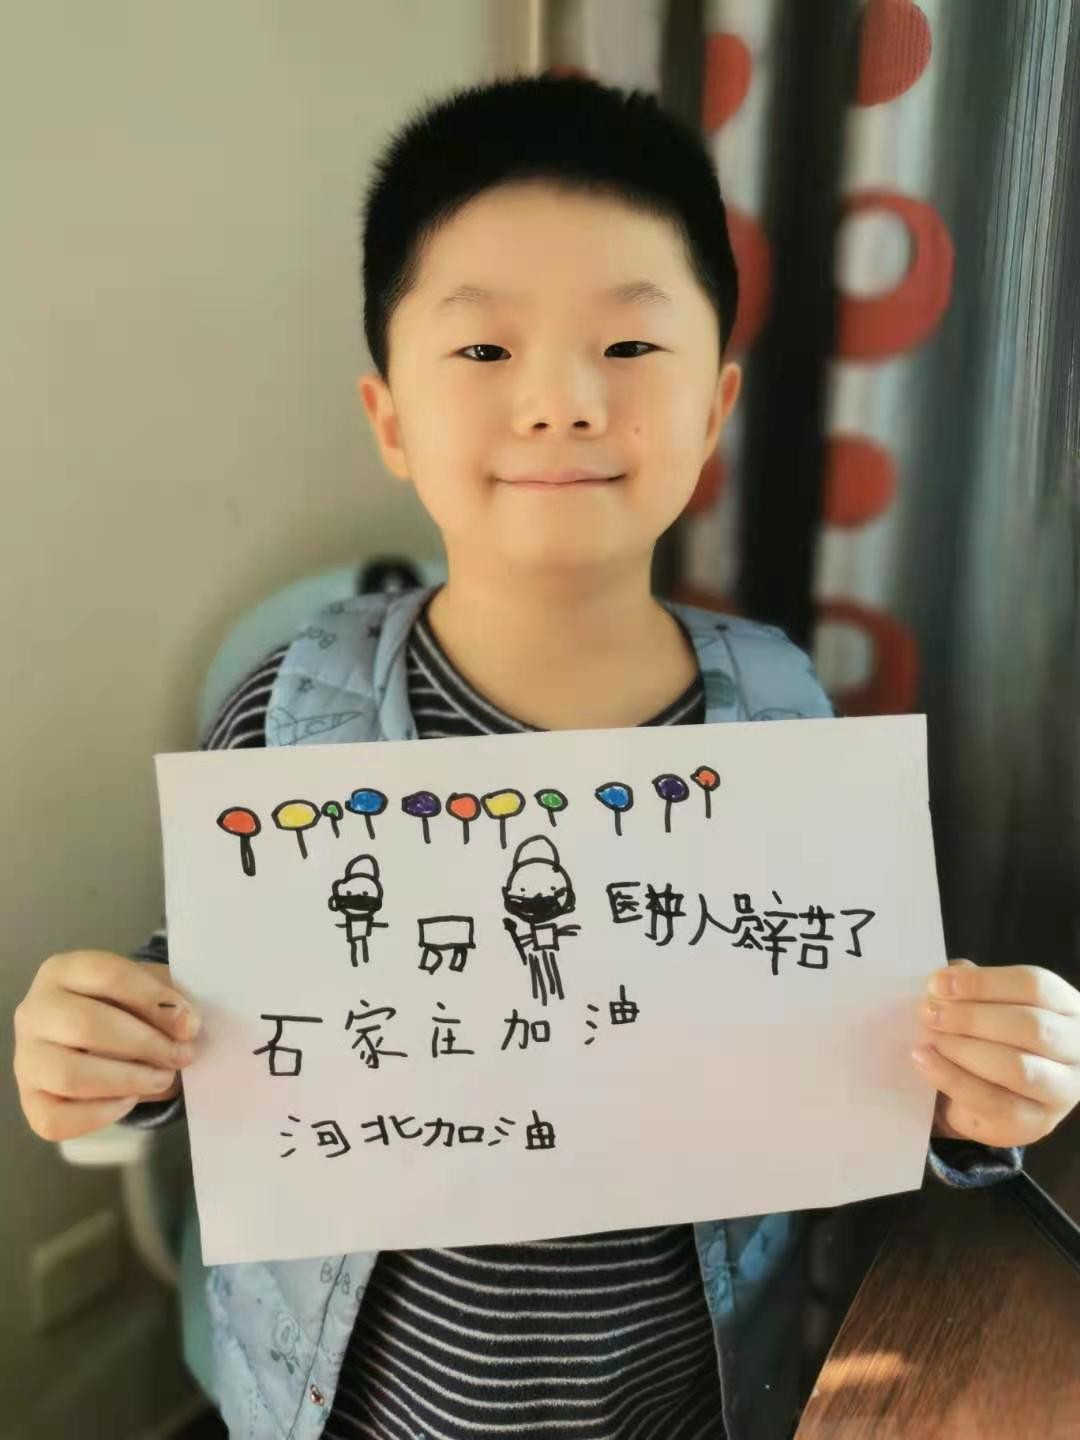 医护人员辛苦了
石家庄加油
河北加油